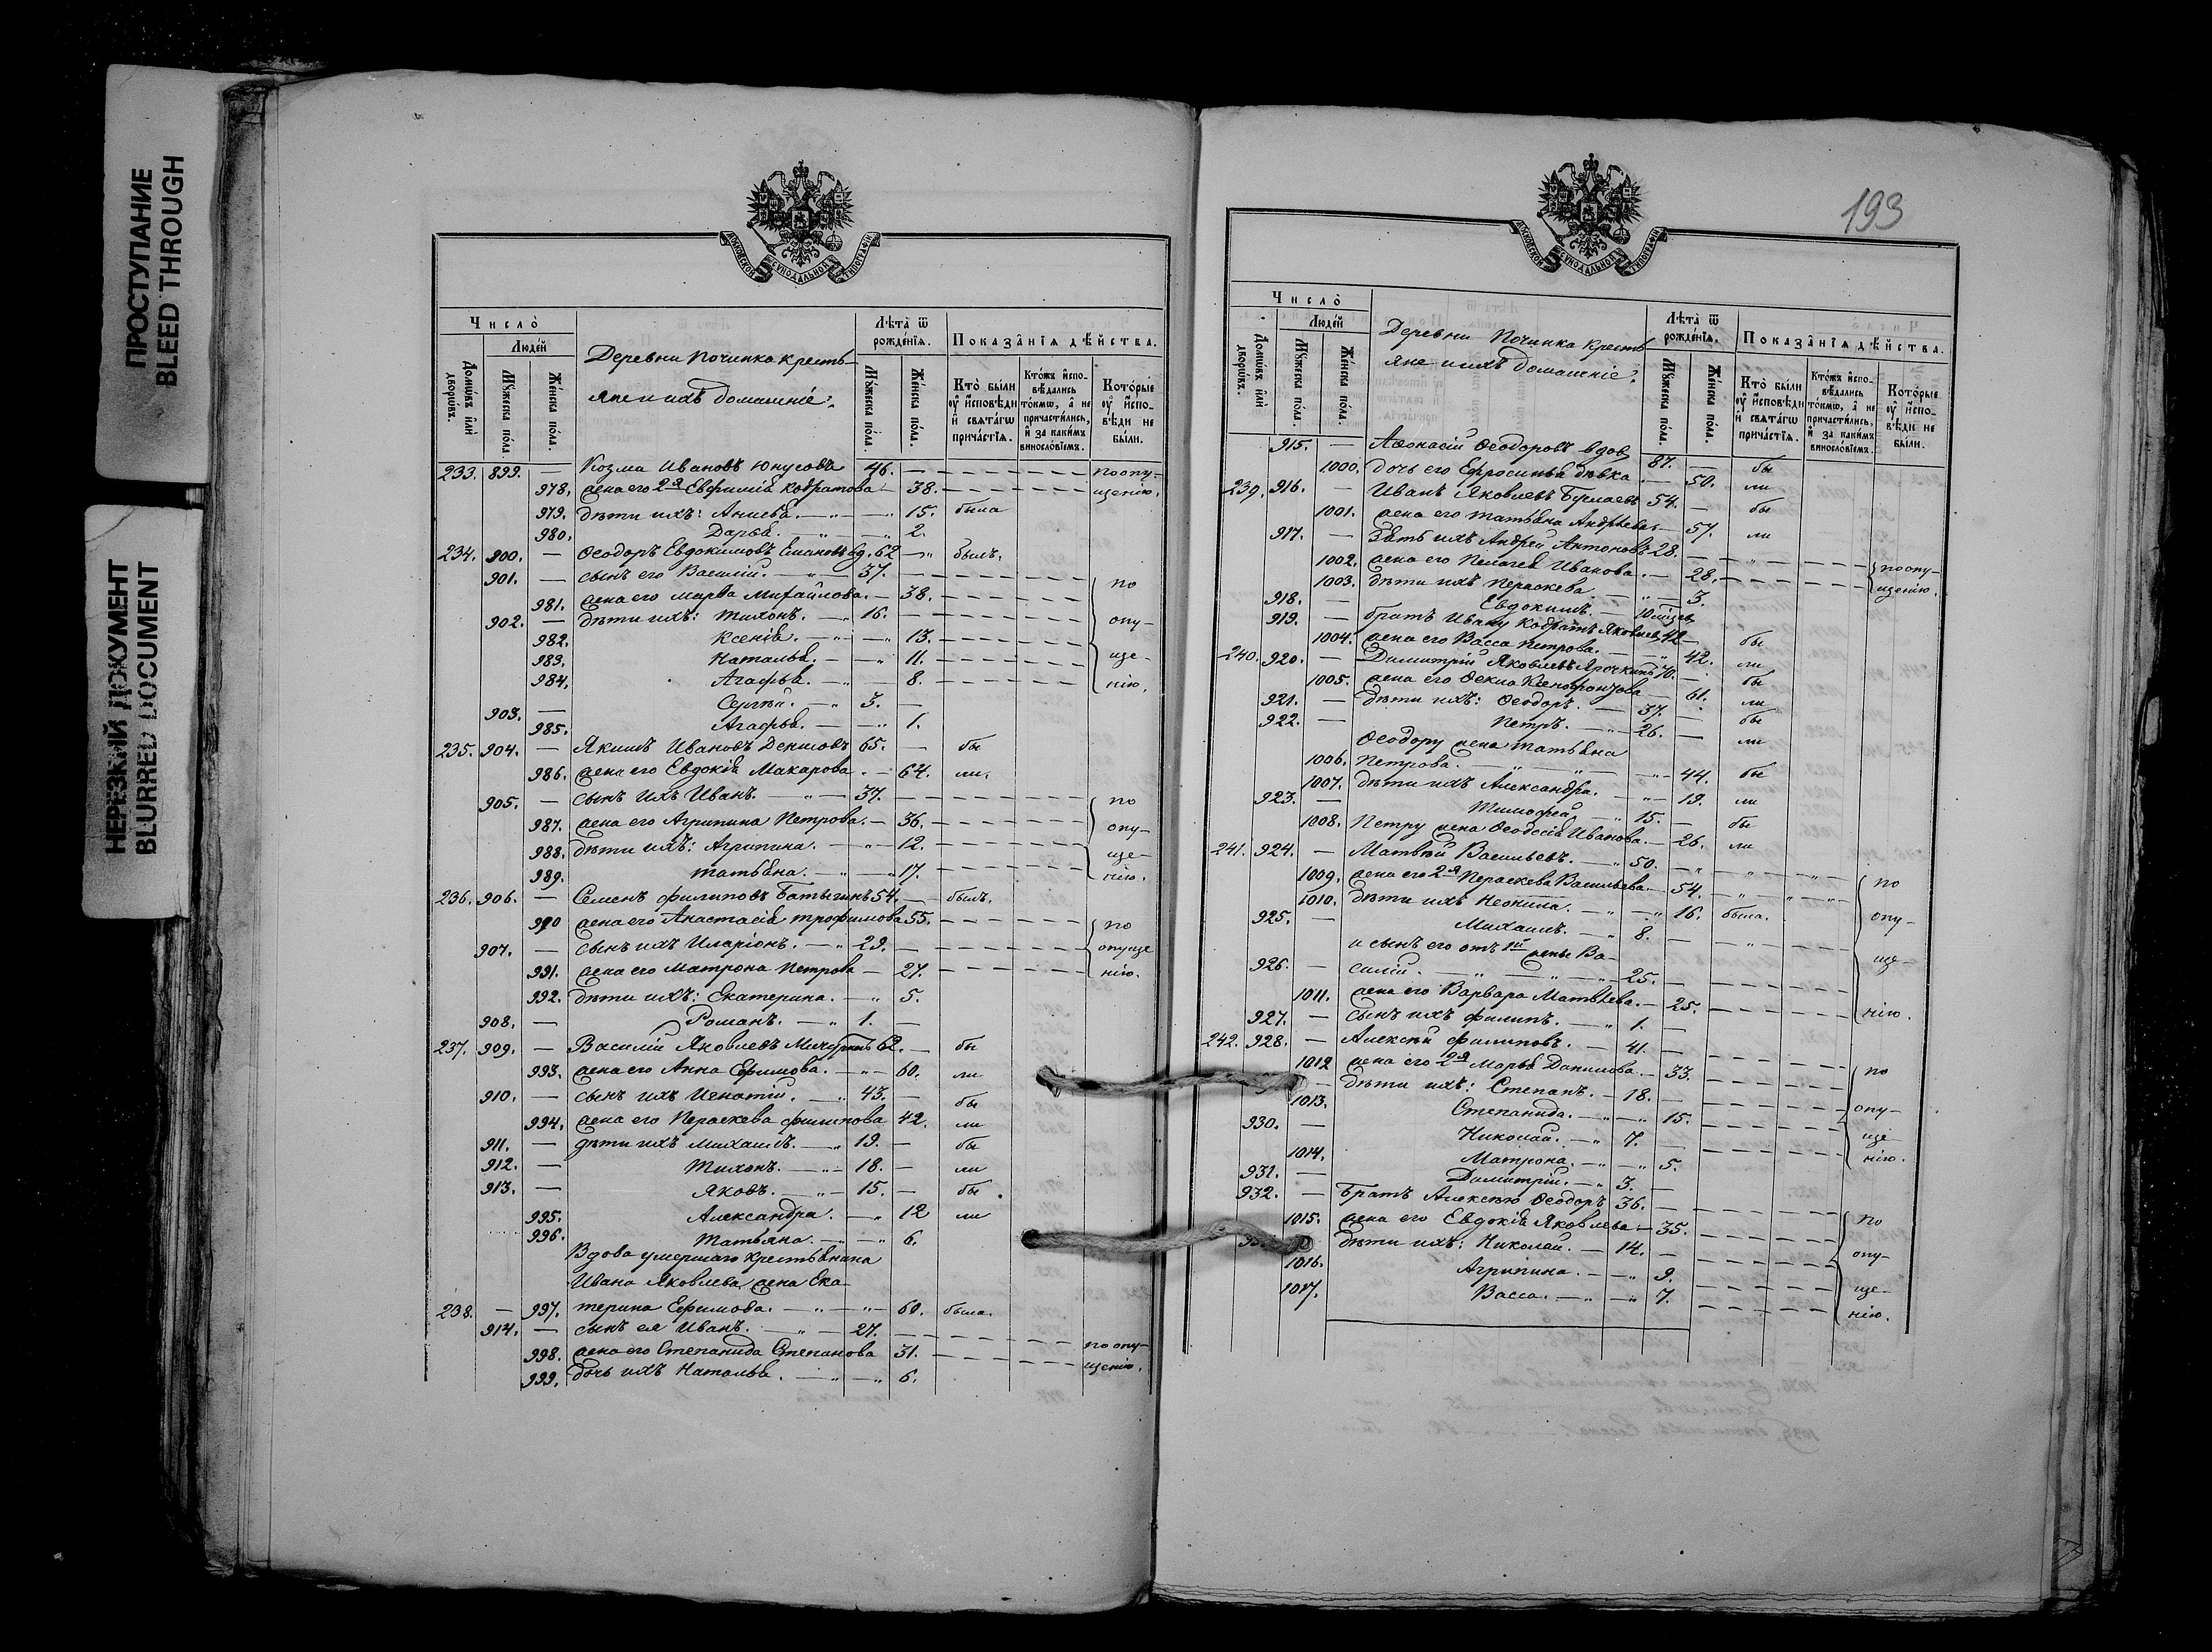 ПРОСТУПАНИЕ
BLEED THROUGH
НЕРЕЗКИЙ ДОКУМЕНТ
BLURRED DOCUMENT
МОСКОВСКОЙ СѴНОДАЛЬНОЙ ТИПОГРАФІИ
Число̀
Людей
Домѡвъ или дворѡвъ.
Мꙋжеска пола
Женска пола.
Деревни Починка кресть-
яне и ихъ домашніе:
Лѣта̀ ѿ рожденія.
Мꙋжеска пола
Женска пола.
Показанія дѣйства.
Кто̀ были оу҆ исповѣди и святагѡ причастія.
Ктожъ исповѣдались токмѡ, а не причастились, и за какимъ винословіемъ.
Которые оу҆ исповѣди не были.
233. 899. — Козма Ивановъ Юнусовъ 46. — по опу-
978. жена его 2я Евфимія Кодратова — 38. щенію.
979. дѣти ихъ: Анисья. — 15. была
980. Дарья. 2.
234. 900. — Ѳеодоръ Евдокимовъ вд. 62 — былъ.
901. — сынъ его Василій. — 37. по
981. жена его Марѳа Михайлова. — 38.
902. — дѣти ихъ: Тихонъ. — 16. — опу-
982. Ксенія. — 13.
983. Наталья. — 11. ще-
984. Агафья. — 8. нію.
903. — Сергѣй. — 3. —
985. Агафья. — 1.
235. 904. — Якимъ Ивановъ Денисовъ 65. — бы
986. жена его Евдокія Макарова. — 64. ли.
905. — сынъ ихъ Иванъ. — 37. — по
987. жена его Агрипина Петрова. — 36. опу-
988. дѣти ихъ: Агрипина. — 12. ще-
989. Татьяна. — 17. нію.
236. 906. — Семенъ Филиповъ Батыгинъ 54. — былъ.
990 жена его Анастасія Трофимова 55. по
907. — сынъ ихъ Иларіонъ. — 29. — опуще
991. жена его Матрона Петрова — 27. нію.
992. дѣти ихъ: Екатерина. — 5.
908. — Романъ. — 1. —
237. 909. — Василій Яковлевъ Мичуринъ 62. — бы
993. жена его Анна Ефимова. — 60. ли
910. — сынъ ихъ Игнатій. — 43. — бы
994. жена его Параскева Филипова 42. ли
911. — дѣти ихъ Михаилъ. — 19. — бы
912. — Тихонъ. — 18. — ли
913. — Яковъ. — 15. — бы
995. Александра. — 12 ли
996. Татьяна. — 6.
Вдова умершаго крестьянина
Ивана Яковлева жена Ека-
238. — 997. терина Ефимова. — 60. была.
914. — сынъ ея Иванъ. — 27.
998. жена его Степанида Степанова 31. по опу-
999. дочь ихъ Наталья. — 6. щенію.
193
МОСКОВСКОЙ СѴНОДАЛЬНОЙ ТИПОГРАФІИ
Число̀
Людей
Домѡвъ или дворѡвъ.
Мꙋжеска пола
Женска пола.
Деревни Починка кресть
яне и ихъ домашніе:
Лѣта̀ ѿ рожденія.
Мꙋжеска пола.
Женска пола.
Показанія дѣйства.
Кто̀ были оу҆ исповѣди и святагѡ причастія.
Ктожъ исповѣдались токмѡ, а не причастились, и за какимъ винословіемъ.
Которые оу҆ исповѣди не были.
915. — Аѳонасій Ѳеодоровъ вдов 87. — бы
1000. дочь его Ефросинья дѣвка — 50. ли
239. 916. — Иванъ Яковлевъ 54. — бы
1001. жена его Татьяна Андрѣева — 57. ли
917. — Зять ихъ Андрей Антоновъ 28. —
1002. жена его Пелагея Иванова. — 28. по опу-
1003. дѣти ихъ Параскева — 3. щенію.
918. — Евдокимъ. — 10 мѣсец
919. — братъ Ивану Кодратъ Яковлев 42 — бы
1004. жена его Васса Петрова. — 42. ли
240. 920. — Димитрій Яковлевъ Ярочкинъ 70. — бы
1005. жена его Ѳекла Ксенофонтова — 61. ли
921. — дѣти ихъ: Ѳеодоръ. — 37. — бы
922. — Петръ. — 26. — ли
Ѳеодору жена Татьяна
1006. Петрова. — 44. бы
1007. дѣти ихъ Александра. — 19. ли
923. — Тимофей — 15. — бы
1008. Петру жена Ѳеодосія Иванова. — 26. ли
241. 924. — Матвѣй Васильевъ. — 50. по
1009. жена его 2я Параскева Васильева. — 54.
1010. дѣти ихъ Неонила. — 16. была. опу-
925. — Михаилъ. — 8. —
и сынъ его отъ 1й жены Ва- ще-
926. — силій. — 25. —
1011. жена его Варвара Матвѣева. — 25.
927. — сынъ ихъ Филипъ. — 1. — нію.
242. 928. — Алексѣй Филиповъ. — 41. —
1012 жена его 2я Марья Данилова. — 33. по
— дѣти ихъ: Степанъ. — 18. —
1013. Степанида. — 15. опу-
930. — Николай. — 7. — ще
1014. Матрона. — 5. нію.
931. — Димитрій. — 3. —
932. — Братъ Алексѣю Ѳеодоръ 36. —
1015. жена его Евдокія Яковлева. — 35. по
дѣти ихъ: Николай. — 14. — опу-
1016. Агрипина. — 9. ще-
1017. Васса. — 7. нію.